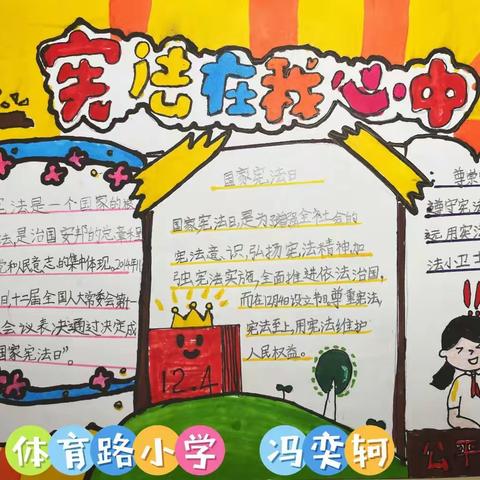 宪法在我心中
宪法是一个国家的
法,是治国安邦的总章程
党和人民意志的集中体现。2014年11
日,十二届全国人大常委会第一
会议表决通过决定成
国家宪法日”。
国家宪法日
国家宪法日,是为了增强全社会的
宪法意识,弘扬宪法精神,加
强宪法实施,全面推进依法治国。
而在12月4日设立节日,尊重宪法,
宪法至上,用宪法维护
人民权益。
12.4
尊崇
遵守宪法
远,用宪法
法小卫士
公平
体育路小学 冯奕轲